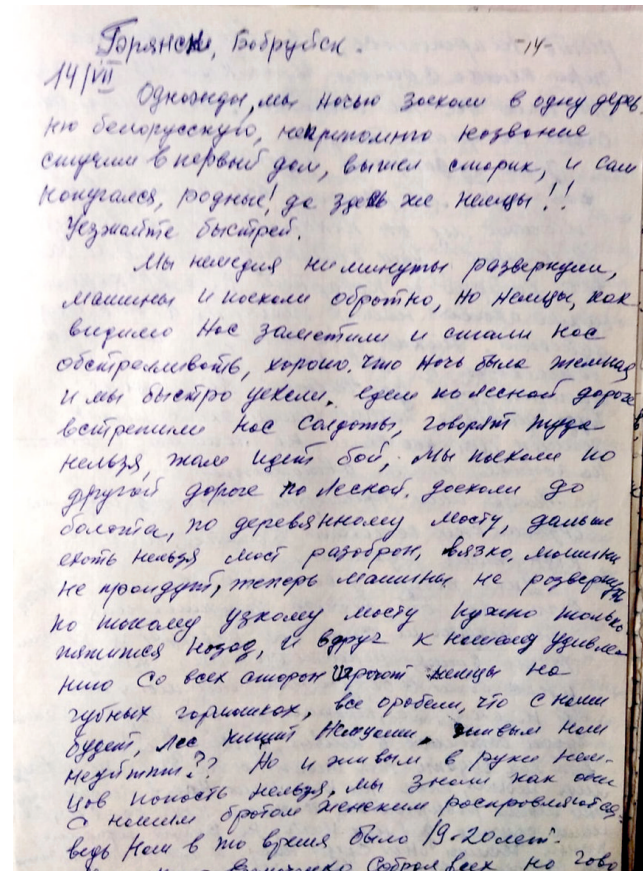 Брянск, Бобруйск. -14-
14/VII
Однажды, мы ночью заехали в одну дерев
ню белорусскую, неприпомню название
стучали в первый дом, вышел старик, и сам
испугался, родные! да здесь же немцы!!
Уезжайте быстрей.
Мы немедля ни минуты развернули,
машины и поехали обратно, но немцы, как
видимо нас заметили и стали нас
обстреливать, хорошо, что ночь была темная
и мы быстро уехали, едем по лесной дороге
встретили нас солдаты, говорят туда
нельзя, там идет бой, мы поехали по
другой дороге по лесной, доехали до
болота, по деревянному мосту, дальше
ехать нельзя мост разобран, вязко, машины
не пройдут, теперь машины не развернуть
по такому узкому мосту нужно только
пятится назад, и вдруг к нашему удивле-
нию со всех сторон играют немцы на
губных гармошках, все оробели, что с нами
будет, лес кишит немцами, живым нам
неуйтти?? Но и живым в руки нем-
цов попасть нельзя, мы знали как они
с нашим братом женским расправляются,
ведь нам в то время было 19-20 лет.
собрал всех но гово